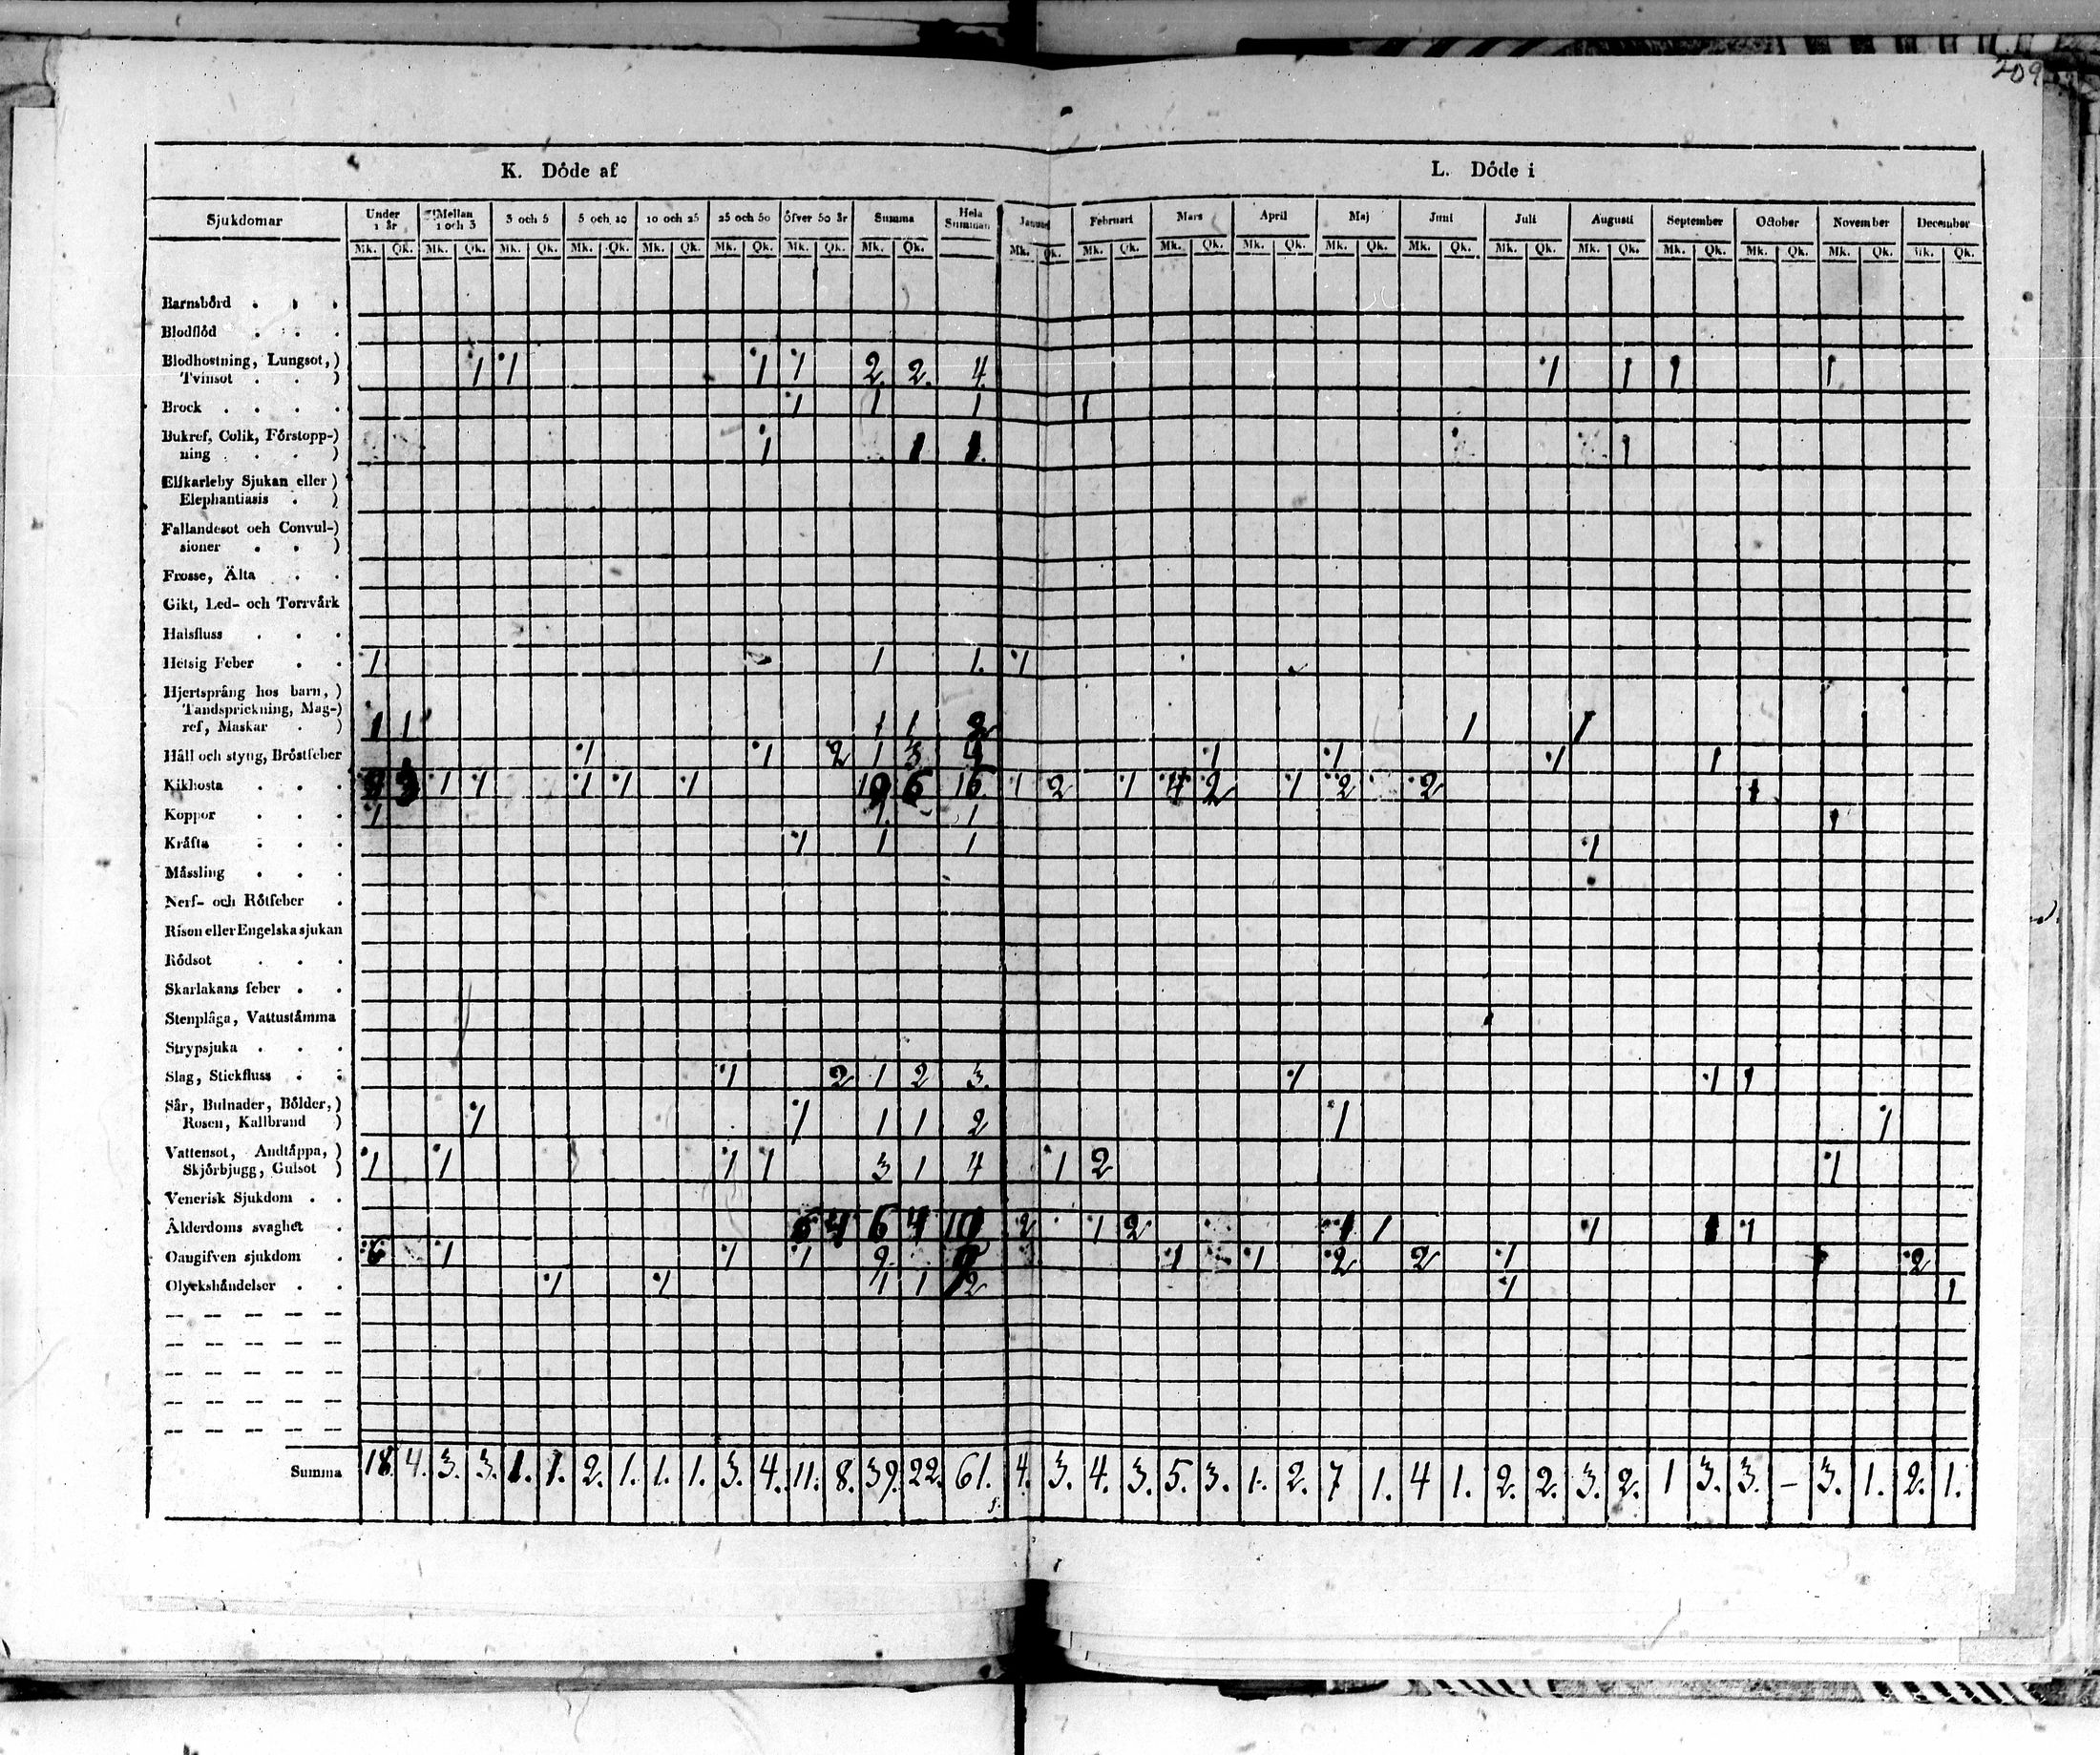 209
K. Döde af L. Döde i
Sjukdomar Under 1 år Mellan 1 och 3 3 och 5 5 och 10 10 och 25 25 och 50 Öfver 50 år Summa Hela Summan Januari Februari Mars April Maj Juni Juli Augusti September October November December
Mk. Qk. Mk. Qk. Mk. Qk. Mk. Qk. Mk. Qk. Mk. Qk. Mk. Qk. Mk. Qk. Mk. Qk. Mk. Qk. Mk. Qk. Mk. Qk. Mk. Qk. Mk. Qk. Mk. Qk. Mk. Qk. Mk. Qk. Mk. Qk. Mk. Qk. Mk. Qk.
Barnsbörd . . .
Blodflöd . . .
Blodhostning, Lungsot, )
Tvinsot . . ) 1 1 1 1 2. 2. 4. 1 1 1 1
Brock . . . . 1 1 1 1
Bukref, Colik, Förstopp-)
ning . . . ) 1 1 1. 1
Elfkarleby Sjukan eller )
Elephantiasis . )
Fallandesot och Convul-)
sioner . . )
Frosse, Älta . .
Gikt, Led- och Torrvärk
Halsfluss . . .
Hetsig Feber . . 1 1 1. 1
Hjertsprång hos barn, )
Tandsprickning, Mag-)
ref, Maskar . ) 1 1 1 1 2 1 1
Håll och styng, Bröstfeber 1 1 2 1 3 4 1 1 1 1
Kikhosta . . . 1 1 1 1 1 6 16. 1 2 1 4 2 1 2 2 1
Koppor . . . 1 1 1 1
Kräfta . . . 1 1 1 1
Mässling . . .
Nerf- och Rötfeber .
Rison eller Engelska sjukan
Rödsot . . .
Skarlakans feber . .
Stenplåga, Vattustämma
Strypsjuka . . .
Slag, Stickfluss . . 1 2 1 2 3. 1 1 1
Sår, Bulnader, Bölder, )
Rosen, Kallbrand ) 1 1 1 1 2 1 1
Vattensot, Andtäppa, )
Skjörbjugg, Gulsot ) 1 1 1 1 3 1 4 1 2 1
Venerisk Sjukdom . .
Ålderdoms svaghet . 6 4 6 4 10 2 1 2 1 1 1 1 1
Oangifven sjukdom . 6 1 1 1 9. 1 1 2 2 1 2
Olyckshändelser . . 1 1 1 1 2 1 1
Summa 18. 4. 3. 3. 1. 1. 2. 1. 1. 1. 3. 4. 11. 8. 39. 22. 61. 4. 3. 4. 3. 5. 3. 1. 2. 7 1. 4 1. 2. 2. 3. 2. 1 3. 3. – 3. 1. 2. 1.